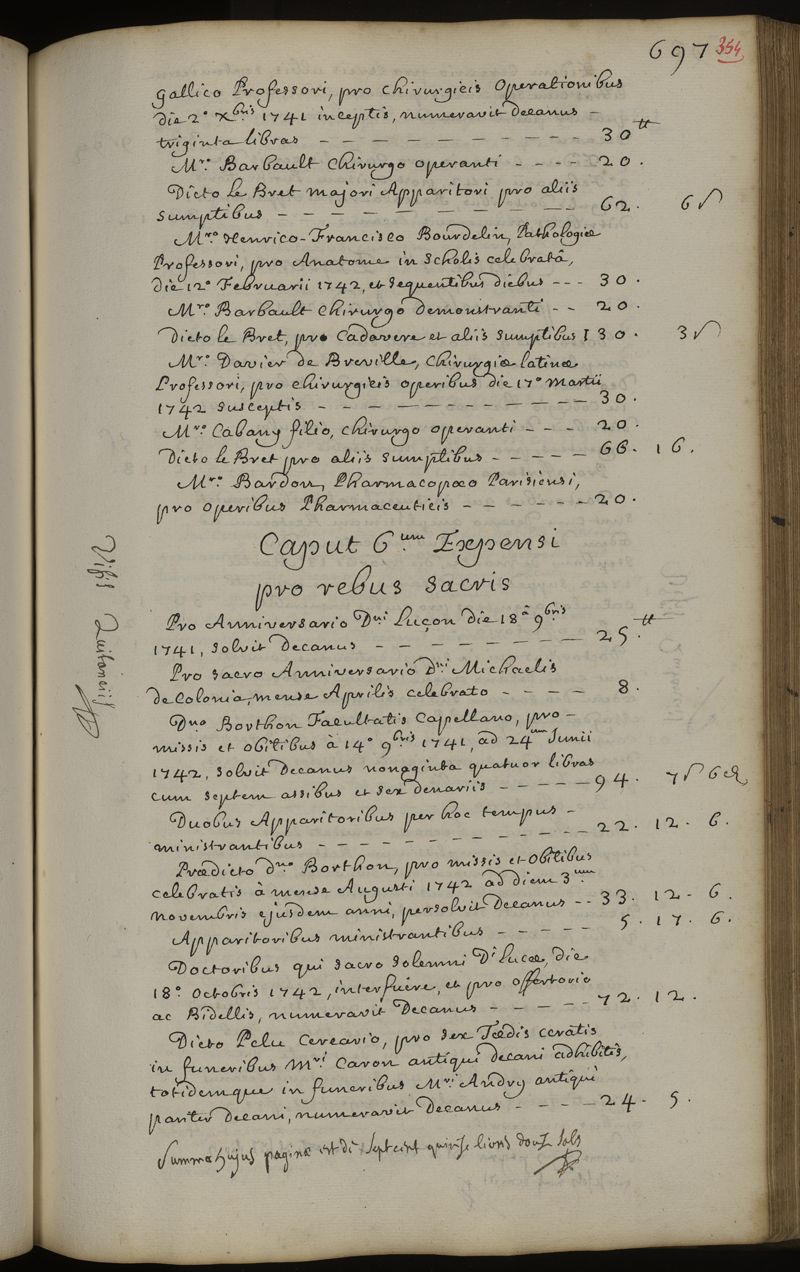 697 354
gallico Professori, pro chirurgicis operationibus
die 2° Xbris 1741 inceptis, numeravit decanus -
triginta libras - - - - - - - - - - 30 tt
Mro. Barbault chirurgo operanti - - - - 20.
Dicto le Bret majori Apparitori pro aliis
sumptibus - - - - - - - - - - - 62. 6 s
Mro. Henrico-Francisco Bourdelin, Pathologiæ
Professori, pro Anatome in scholis celebratâ,
die 12° Februarii 1742, et sequentibus diebus - - - 30.
Mro. Barbault chirurgo demonstranti - - 20.
Dicto le Bret, pro Cadavere et aliis sumptibus 130. 3 s
Mro. Davier de Breville, Chirurgiæ latinæ
Professori, pro chirurgicis operibus die 17° Martii
1742 susceptis - - - - - - - - - - 30.
Mro. Cabany filio, chirurgo operanti - - - 20.
Dicto le Bret pro aliis sumptibus - - - - - 66. 16.
Mro. Bardon, Pharmacopœo Parisiensi,
pro operibus Pharmaceuticis - - - - - - 20.
Caput 6um Expensi
pro rebus sacris
Pro Anniversario Dni Luçon die 18â 9bris
1741, solvit decanus - - - - - - - 25 tt
Pro sacro Anniversario Dni Michaelis
de Colonia, mense Aprilis celebrato - - - - 8.
Dno Borthon Facultatis Capellano, pro -
missis et obitibus à 14° 9bris 1741, ad 24um Junii
1742, solvit Decanus nonaginta quatuor libras
cum septem assibus et sex denariis - - - - - 94. 7 s 6 d
Duobus Apparitoribus per hoc tempus -
ministrantibus - - - - - - - - - - 22. 12. 6.
Prædicto dno Borthon, pro missis et obitibus
celebratis à mense Augusti 1742 ad diem 3um
novembris ejusdem anni, persolvit Decanus - - 33. 12 - 6.
Apparitoribus ministrantibus - - - - - 5. 17. 6.
Doctoribus qui sacro solemni Di Lucæ, die
18° Octobris 1742, interfuêre, et pro offertorio
ac Bidellis, numeravit Decanus - - - - - 72. 12.
Dicto Pelu Cereario, pro sex Tædis ceratis
in funeribus Mri Caron antiqui decani adhibitis,
totidemque in funeribus Mri Andry antiqui
pariter decani, numeravit Decanus - - - - 24 - 5.
Summa hujus paginæ est de sept cent quinze livres douze sols